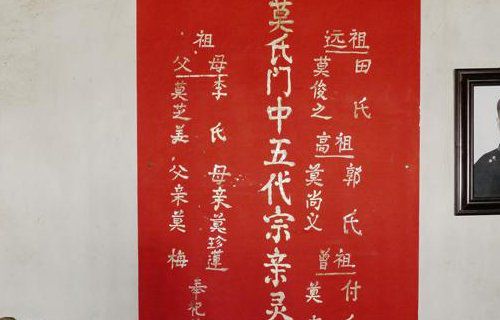 祖田氏 祖郭氏 祖付
远莫俊之 高莫尚义 曾莫
莫氏门中五代宗亲灵
祖
母李氏 母亲莫珍莲
父莫芝美 父亲莫梅
奉祀